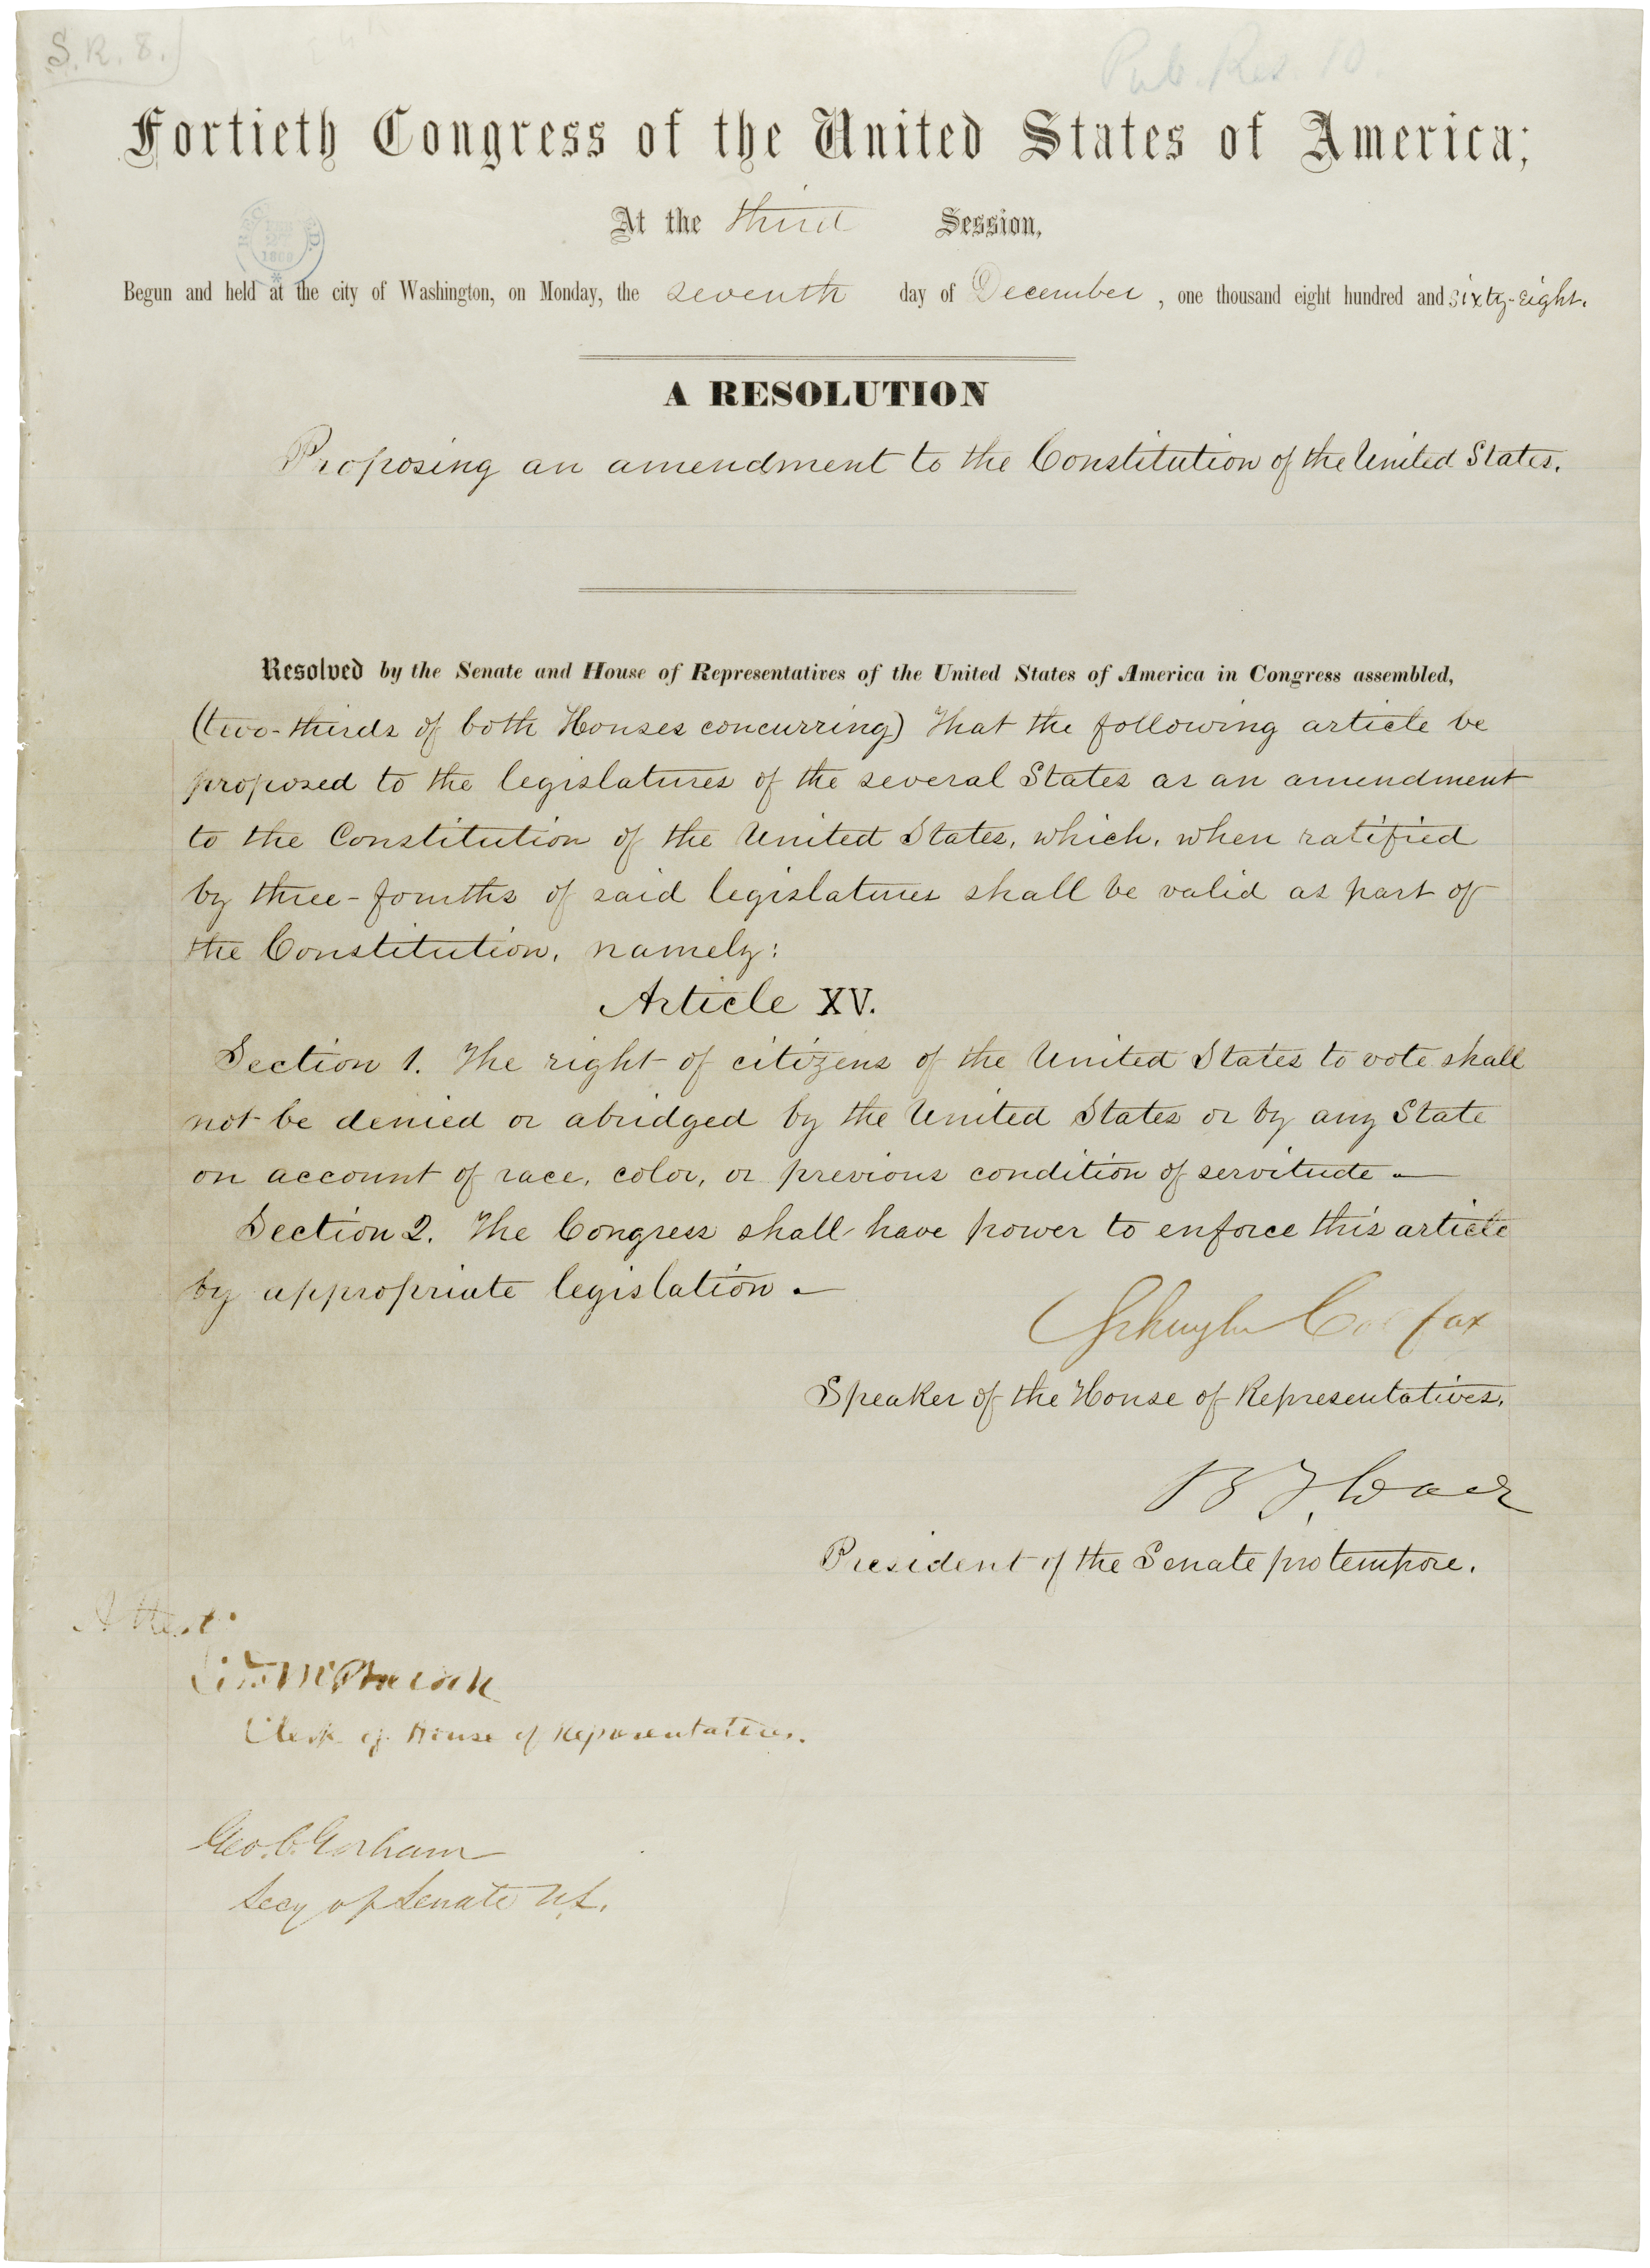 S.R. 8.)
Pub. Res. 10.
Fortieth Congress of the United States of America;
At the third Session,
Begun and held at the city of Washington, on Monday, the seventh day of December, one thousand eight hundred and sixty-eight.
A RESOLUTION
Proposing an amendment to the Constitution of the United States.
Resolved by the Senate and House of Representatives of the United States of America in Congress assembled,
(two-thirds of both Houses concurring) That the following article be
proposed to the legislatures of the several States as an amendment
to the Constitution of the United States, which, when ratified
by three-fourths of said legislatures shall be valid as part of
the Constitution, namely:
Article XV.
Section 1. The right of citizens of the United States to vote shall
not be denied or abridged by the United States or by any State
on account of race, color, or previous condition of servitude.—
Section 2. The Congress shall have power to enforce this article
by appropriate legislation.—
Schuyler Colfax
Speaker of the House of Representatives.
B F Wade
President of the Senate pro tempore.
Attest:
McPherson
Clerk of House of Representatives.
Geo. C. Gorham
Secy of Senate U.S.